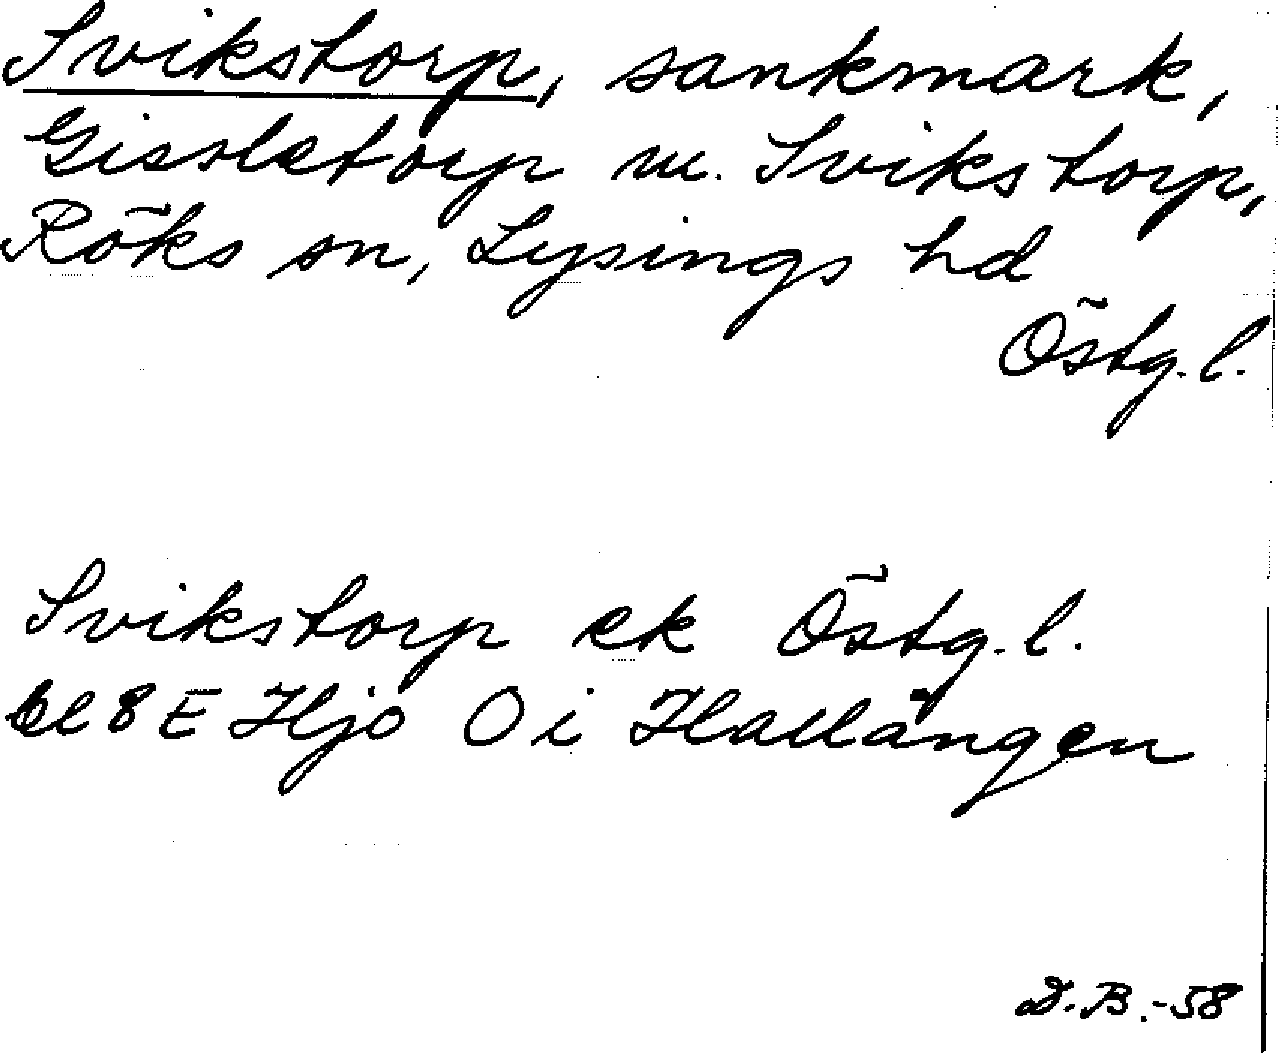 Svikstorp, sankmark,
Gissletorp m. Svikstorp,
Röks sn, Lysings hd
Östg. l.
Svikstorp ek Östg. l.
bl 8 E Hjo O i Hallängen
D. B. -58